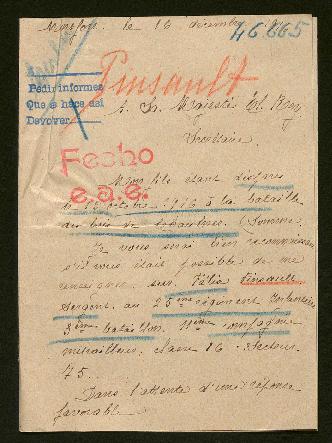 le 16 décembre
46.665
Pinsault
Pedir informes
Que se hace así
Devolver
A Sa Majesté El Rey
Secrétaire
Fecho
e.a.e.
Mon fils étant disparu
le octobre 1916 à la bataille
du bois de (Somme.
Je vous serai bien reconnaissant
s'il vous était possible de me
renseigner sur Félix Pinsault
Sergent au 25ème régiment Infanterie
3ème bataillon. 11ème compagnie
mitrailleur. classe 16. Secteur
75.
Dans l'attente d'une réponse
favorable